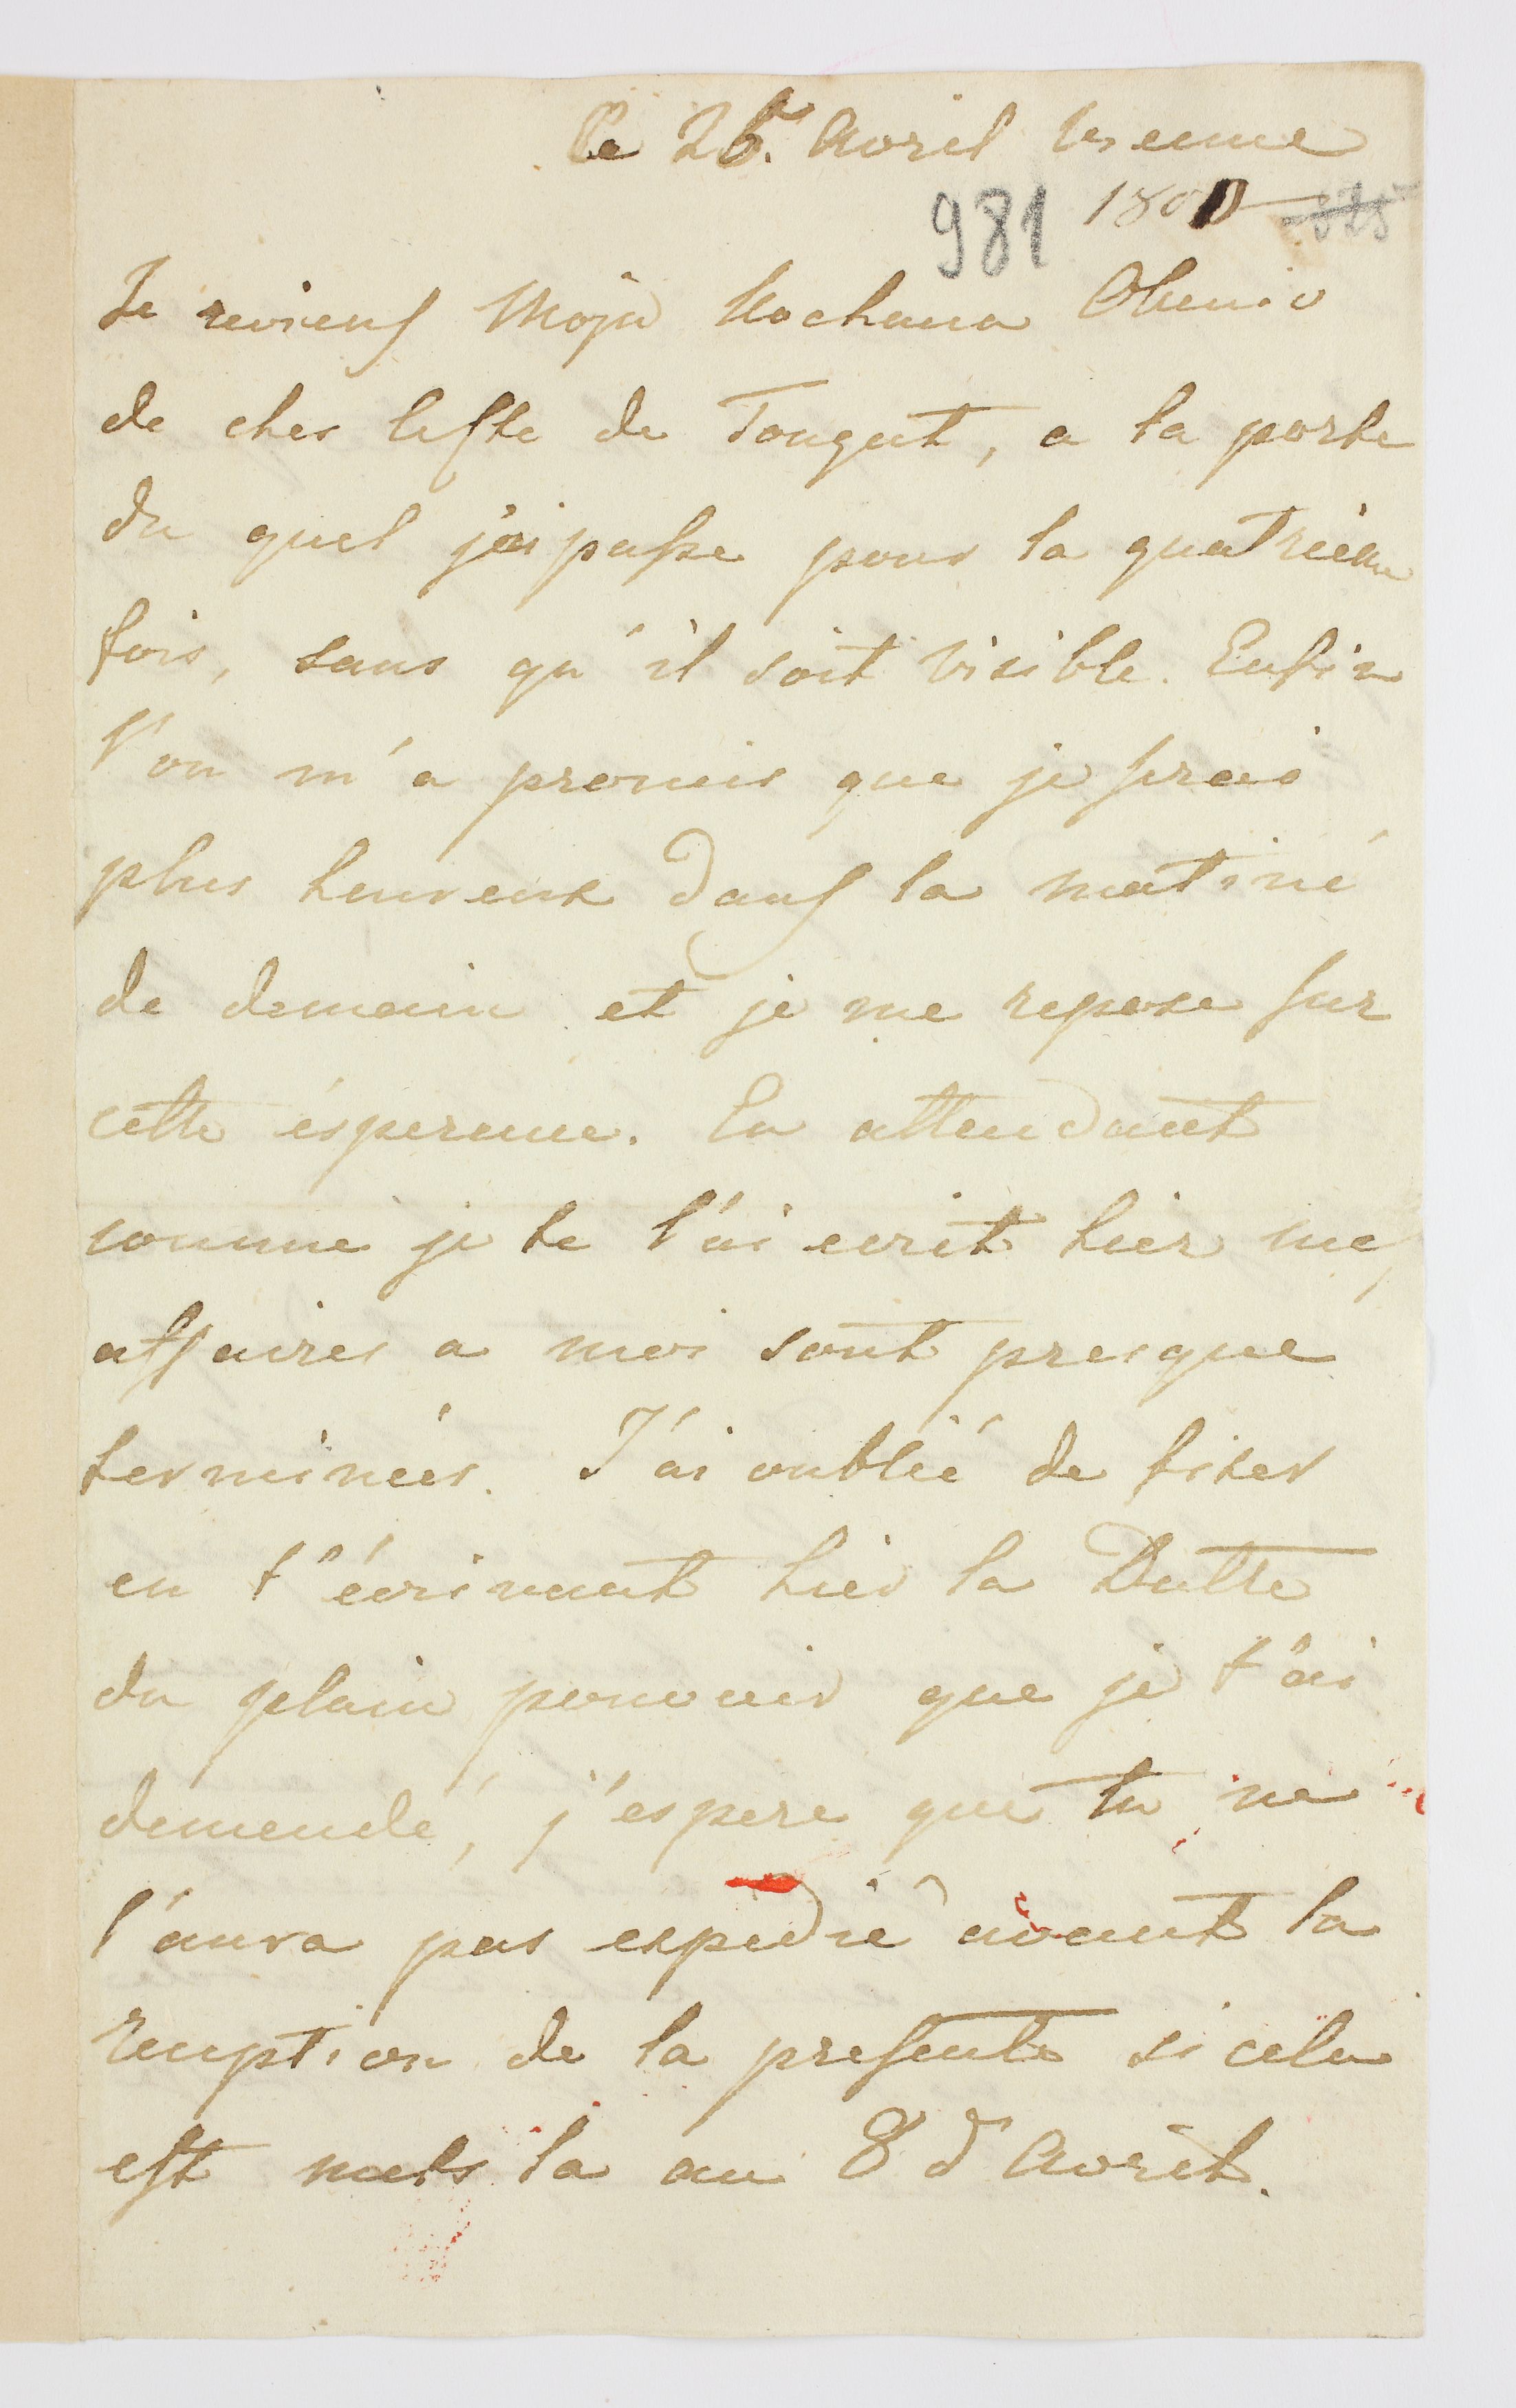 Ce 26. Avril Vienne
981 1800 525
Je reviens Moja Kochana Oluniu
de ches lefte de Tougut, a la porte
du quel j'ai passe pour la quatriem
fois, sans qu'il soit visible. Enfin
l'on m'a promis que je serai
plus heureux dans la matiné
de demain et je me repose sur
cette ésperence. En attendant
comme je te l'ai ecrit hier mes
affaires a moi sont presque
terminées. J'ai oublié de fixer
en t'écrivant hier la Datte
du plain pouvoir que je t'ai
demendé, j'espere que tu ne
l'aura pas expedié avant la
reception de la presente si cela
est mets la au 8 d'Avril.